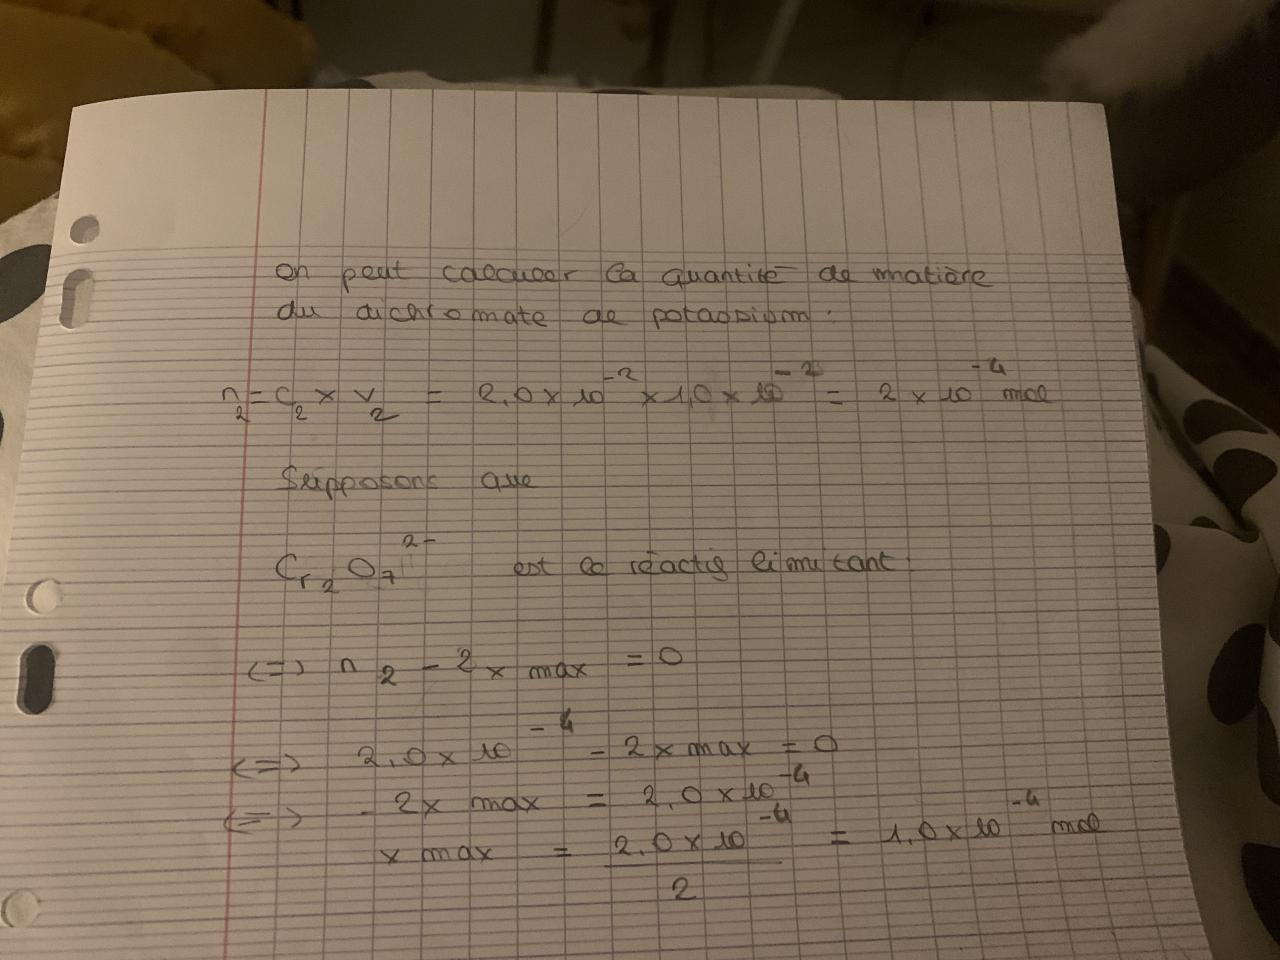 On peut calculer la quantité de matière
du dichromate de potassium :
n₂ = C₂ × V₂ = 2,0 × 10⁻² × 1,0 × 10⁻² = 2 × 10⁻⁴ mol
Supposons que
Cr₂O₇²⁻ est le réactif limitant
<=> n₂ - 2 x max = 0
<=> 2,0 × 10⁻⁴ - 2 x max = 0
<=> - 2 x max = 2,0 × 10⁻⁴
x max = 2,0 × 10⁻⁴ / 2 = 1,0 × 10⁻⁴ mol